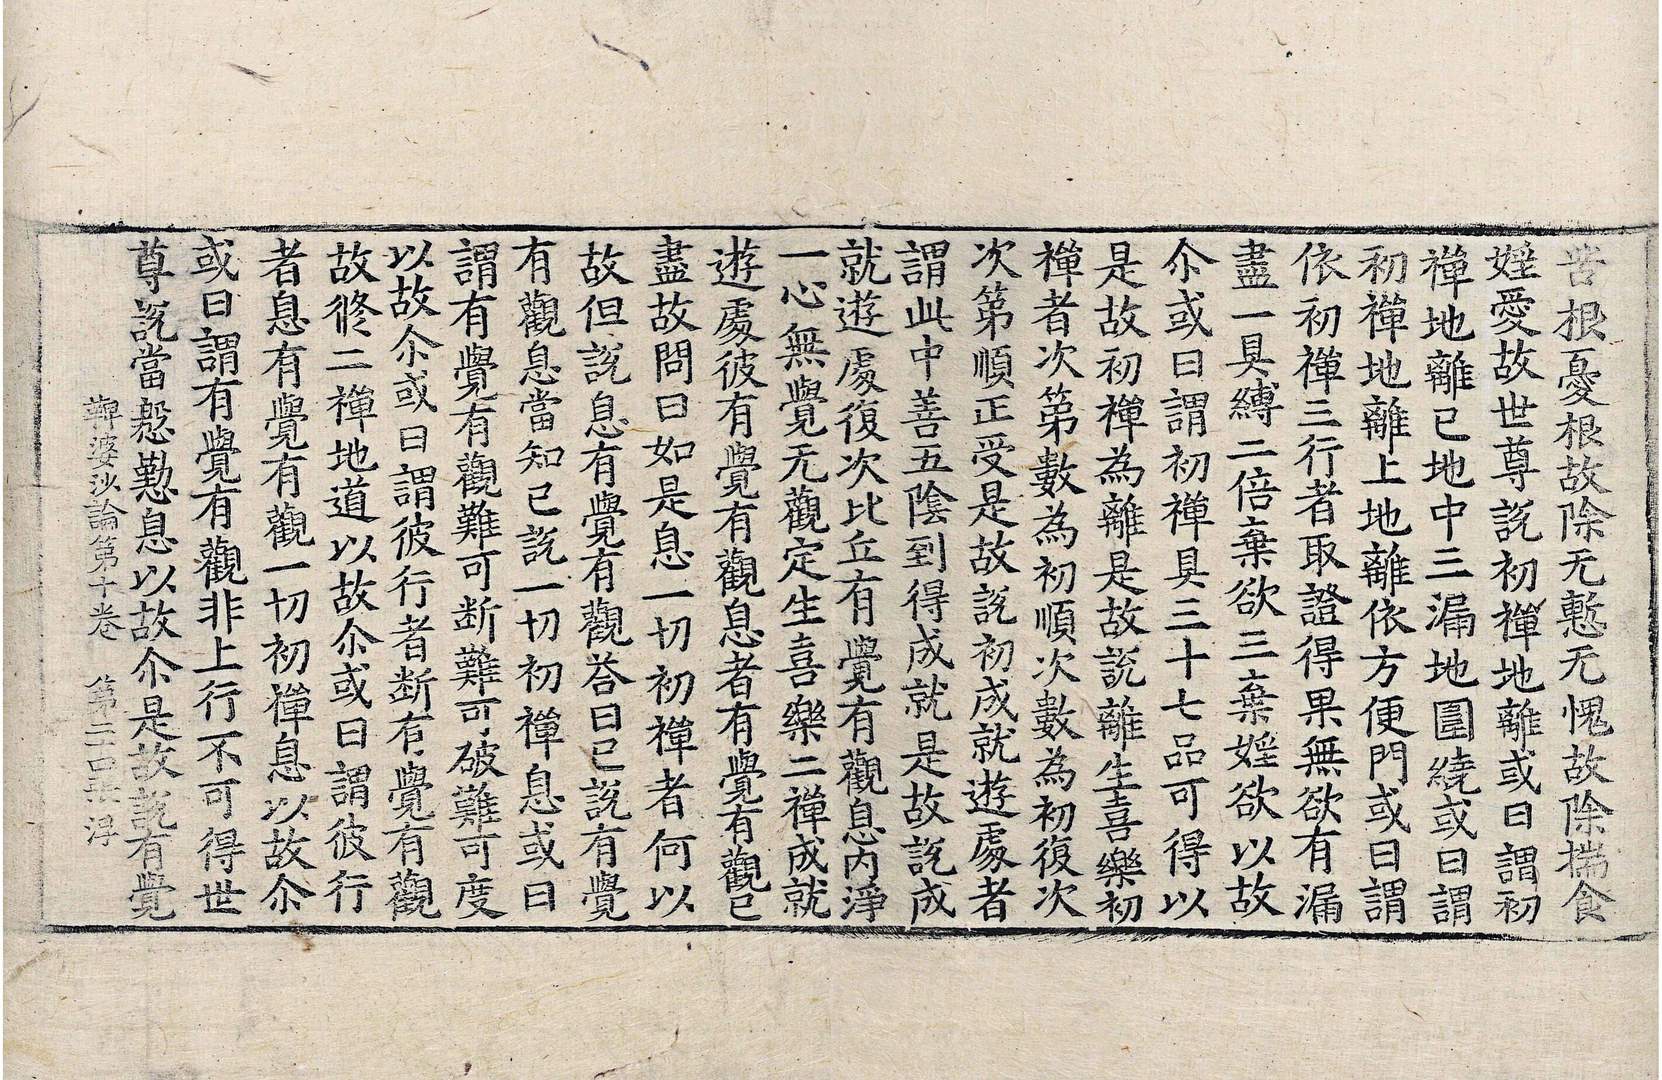 苦根憂根故除无慙无愧故除揣食
婬愛故世尊說初禪地離或曰謂初
禪地離已地中三漏地圍繞或曰謂
初禪地離上地離依方便門或曰謂
依初禪三行者取證得果無欲有漏
盡一具縛二倍棄欲三棄婬欲以故
尒或曰謂初禪具三十七品可得以
是故初禪為離是故說離生喜樂初
禪者次第數為初順次數為初復次
次第順正受是故說初成就遊處者
謂此中善五陰到得成就是故說成
就遊處復次比丘有覺有觀息內淨
一心無覺无觀定生喜樂二禪成就
遊處彼有覺有觀息者有覺有觀已
盡故問曰如是息一切初禪者何以
故但說息有覺有觀荅曰已說有覺
有觀息當知已說一切初禪息或曰
謂有覺有觀難可断難可破難可度
以故尒或曰謂彼行者断有覺有觀
故修二禪地道以故尒或曰謂彼行
者息有覺有觀一切初禪息以故尒
或曰謂有覺有觀非上行不可得世
尊說當慇懃息以故尒是故說有覺
鞞婆沙論第十卷 第二十四張 浮